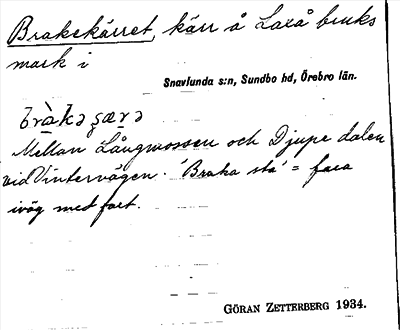 Brakekärret, kärr å Laxå bruks
mark i
Snavlunda s:n, Sundbo hd, Örebro län.
bràkəʂærə
Mellan Långmossen och Djupe dalen
vid Vintervägen. 'Braka sta' = fara
iväg med fart.
GÖRAN ZETTERBERG 1934.